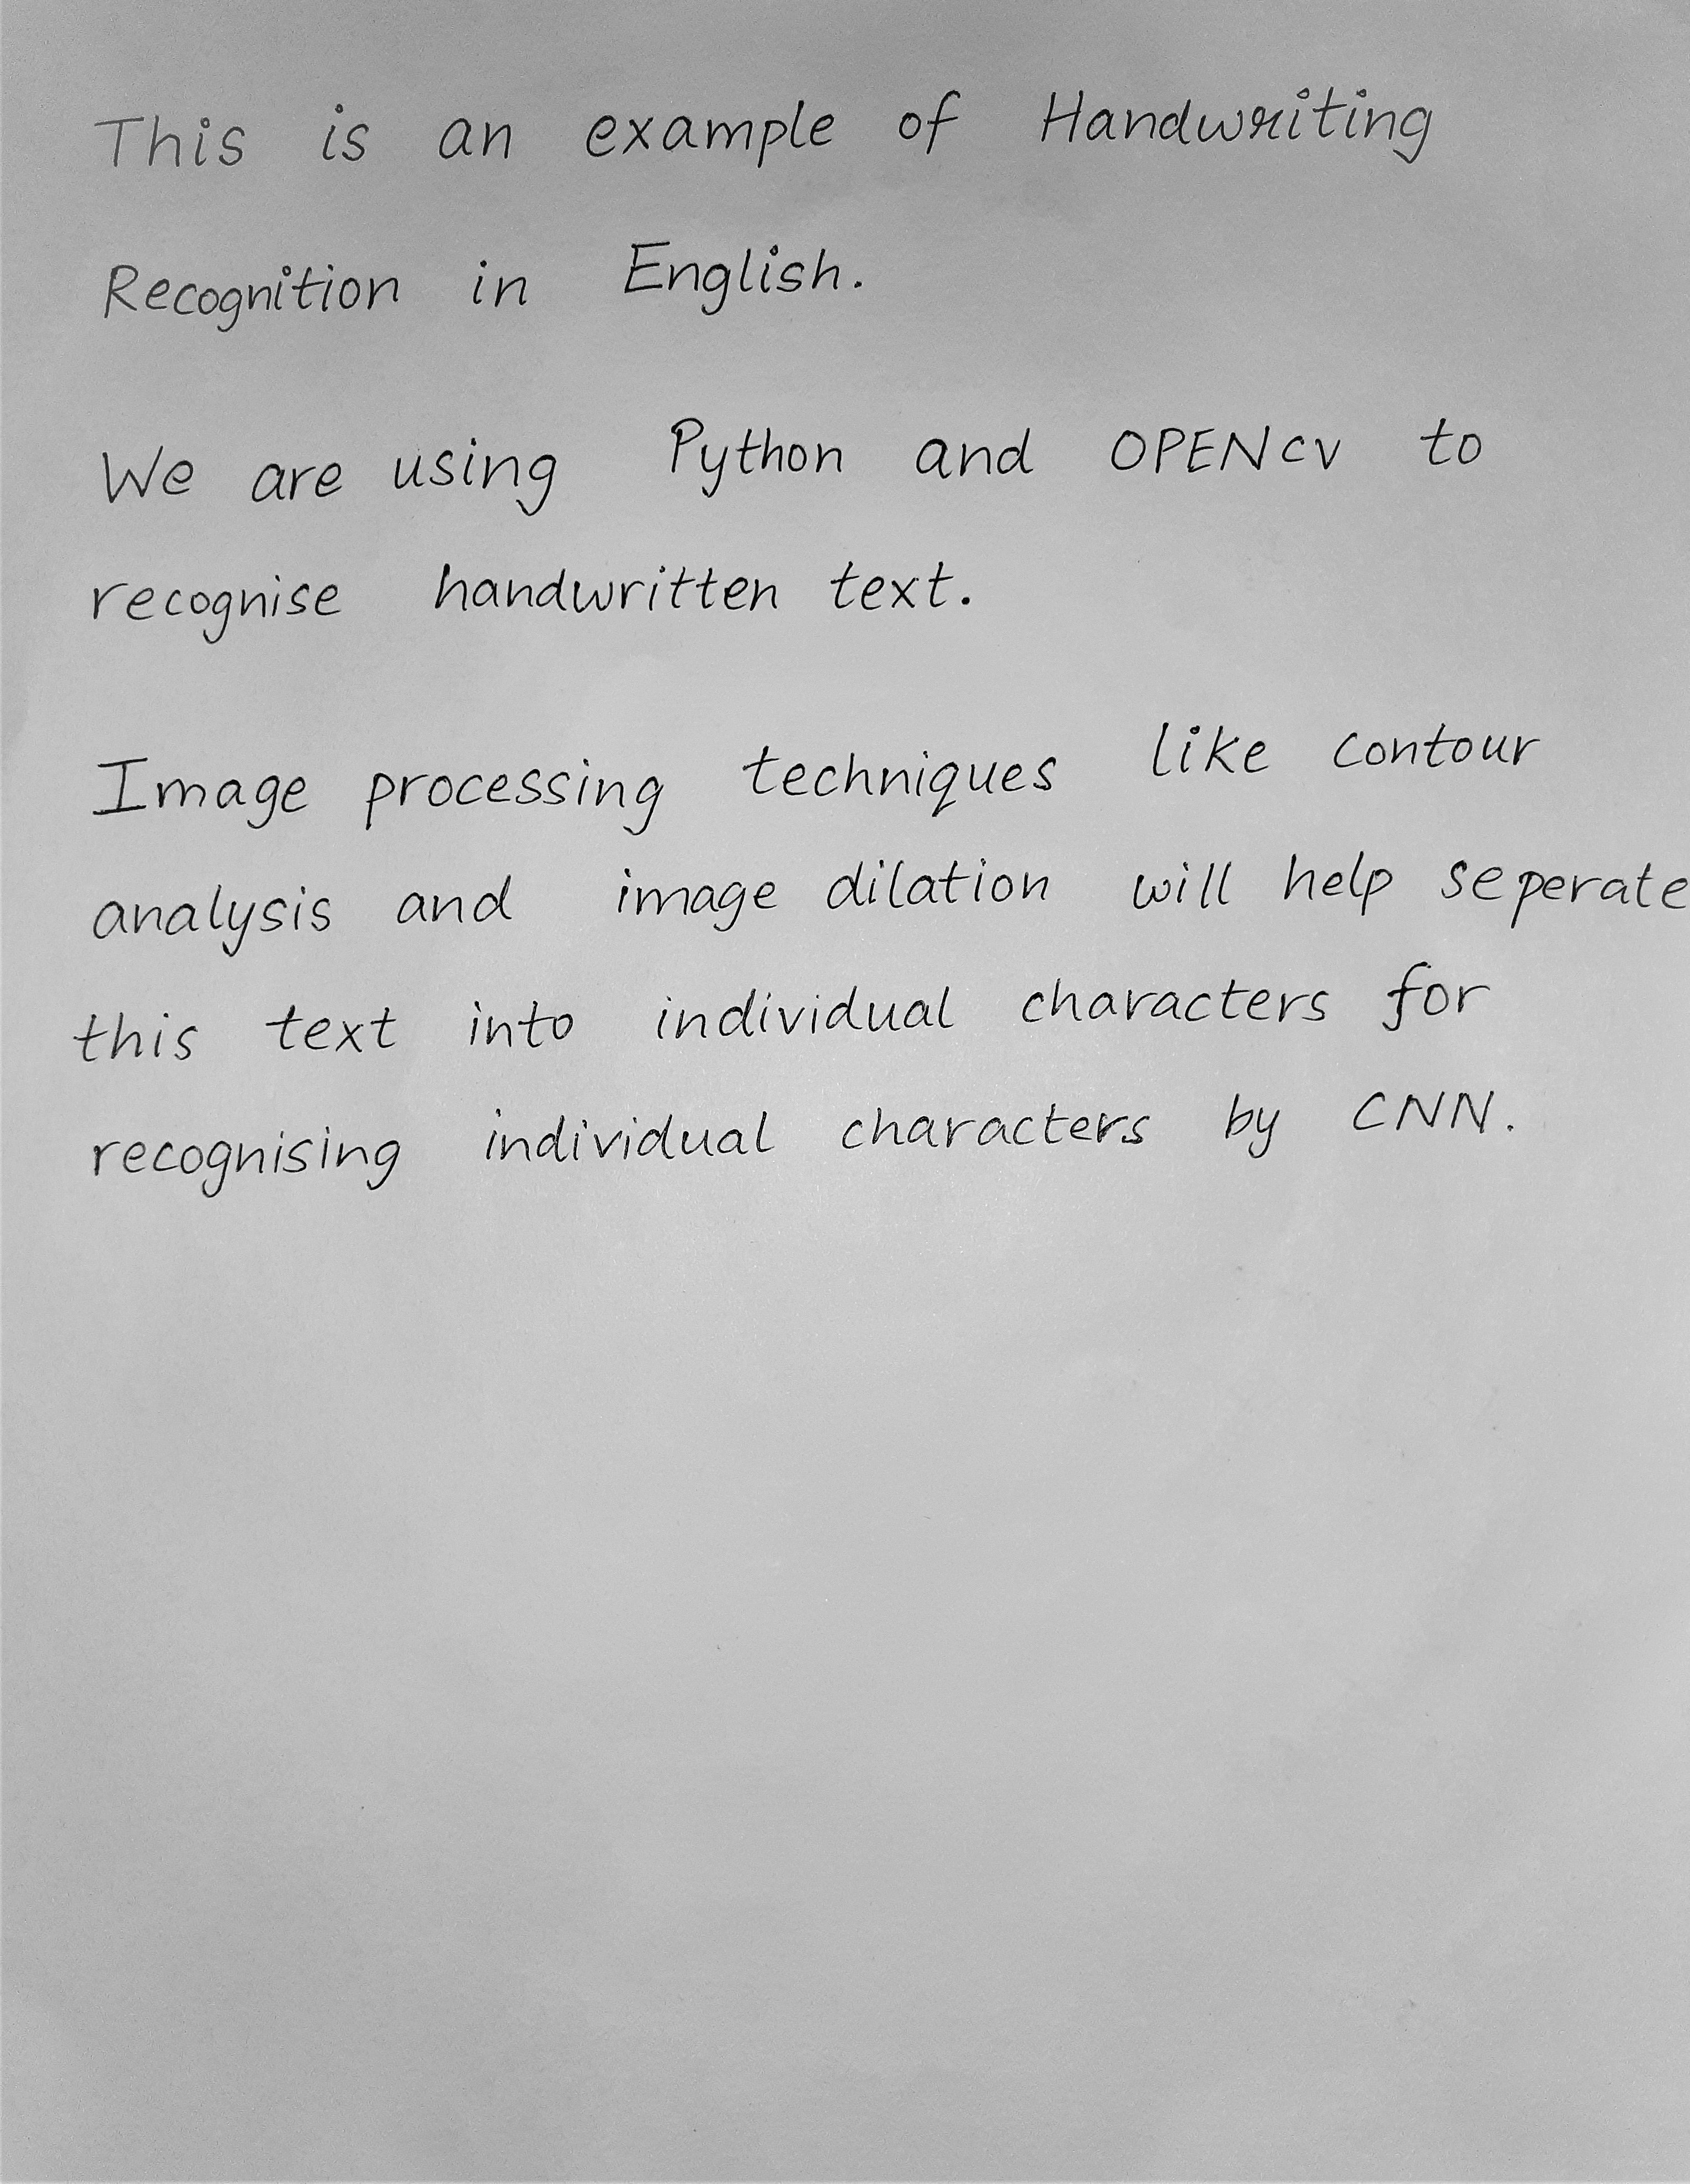 This is an example of Handwriting
Recognition in English.
We are using Python and OPENCV to
recognise handwritten text.
Image processing techniques like contour
analysis and image dilation will help seperate
this text into individual characters for
recognising individual characters by CNN.